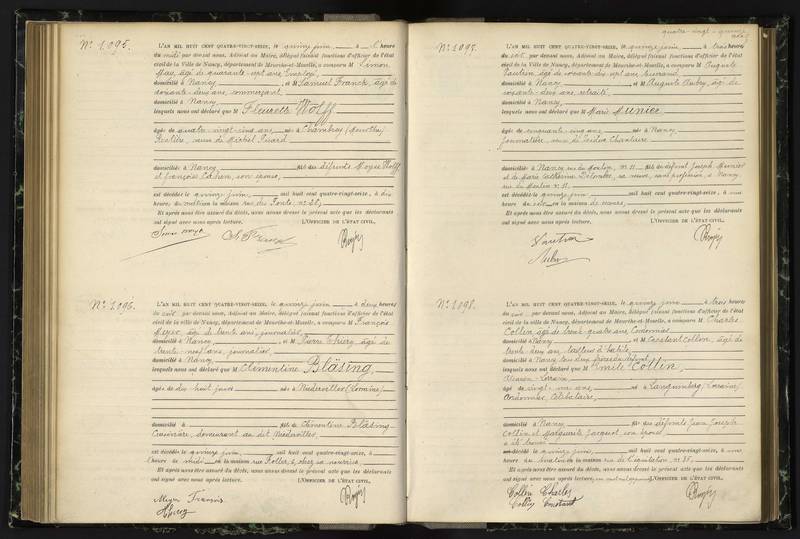 N° 1.095.
L'AN MIL HUIT CENT QUATRE-VINGT-SEIZE, le quinze juin, à l'heure
du midi par devant nous, Adjoint au Maire, délégué faisant fonctions d'officier de l'état
civil de la Ville de Nancy, département de Meurthe-et-Moselle, a comparu M Simon
May, âgé de quarante-sept ans, employé,
domicilié à Nancy, et M Samuel Franck, âgé de
soixante-deux ans, commerçant,
domicilié à Nancy
lesquels nous ont déclaré que M Fleurette Wolff
âgée de quatre-vingt-cinq ans, née à Chambrey (Meurthe)
Rentière, veuve de Michel Picard
domiciliée à Nancy fille des défunts Moyse Wolff
et Françoise Cahen, son épouse,
est décédée le quinze juin, mil huit cent quatre-vingt-seize, à dix
heures du matin en la maison rue des Ponts, n° 28,
Et après nous être assuré du décès, nous avons dressé le présent acte que les déclarants
ont signé avec nous après lecture. L'OFFICIER DE L'ÉTAT CIVIL,
Simon May
S. Franck
N° 1.096.
L'AN MIL HUIT CENT QUATRE-VINGT-SEIZE, le quinze juin à deux heures
du soir par devant nous, Adjoint au Maire, délégué faisant fonctions d'officier de l'état
civil de la ville de Nancy, département de Meurthe-et-Moselle, a comparu M François
Meyer, âgé de trente ans, journalier,
domicilié à Nancy, et M Pierre Thiery, âgé de
trente-neuf ans, journalier,
domicilié à Nancy
lesquels nous ont déclaré que M Clémentine Bläsing,
âgée de dix huit jours née à Niederviller (Lorraine)
domiciliée à fille de Clémentine Bläsing
Cuisinière, demeurant au dit Niederviller,
est décédée le quinze juin, mil huit cent quatre-vingt-seize, à
l'heure de midi en la maison rue Poller, 8, chez sa nourrice,
Et après nous être assuré du décès, nous avons dressé le présent acte que les déclarants
ont signé avec nous après lecture. L'OFFICIER DE L'ÉTAT CIVIL,
Meyer François
Thiery
quatre-vingt-quinze
N° 1097.
L'AN MIL HUIT CENT QUATRE-VINGT-SEIZE, le quinze juin, à trois heures
du soir, par devant nous, Adjoint au Maire, délégué faisant fonctions d'officier de l'état
civil de la Ville de Nancy, département de Meurthe-et-Moselle, a comparu M Auguste
Vautrin, âgé de soixante-dix-sept ans,
domicilié à Nancy, et M Auguste Aubry, âgé de
soixante-deux ans, retraité,
domicilié à Nancy,
lesquels nous ont déclaré que M Marie Munier
âgée de cinquante-cinq ans née à Nancy
Journalière, veuve de Isidor Chantaire
domiciliée à Nancy rue du Moulin, n° 11 fille de défunt Joseph Munier
et de Marie Catherine Delombre, sa veuve, sans profession, à Nancy,
rue du Moulin n° 11,
est décédée le quinze juin, mil huit cent quatre-vingt-seize, à une
heure du soir en la maison de secours,
Et après nous être assuré du décès, nous avons dressé le présent acte que les déclarants
ont signé avec nous après lecture. L'OFFICIER DE L'ÉTAT CIVIL,
Vautrin
Aubry
N° 1098.
L'AN MIL HUIT CENT QUATRE-VINGT-SEIZE, le quinze juin, à trois heures
du soir, par devant nous, Adjoint au Maire, délégué faisant fonctions d'officier de l'état
civil de la ville de Nancy, département de Meurthe-et-Moselle, a comparu M Charles
Collin, âgé de trente quatre ans, Cordonnier
domicilié à Nancy et M Constant Collin, âgé de
trente-deux ans, tailleur d'habits
domicilié à Nancy tous deux frères du défunt
lesquels nous ont déclaré que M Emile Collin,
Alsacien-Lorrain
âgé de vingt-un ans, né à Languimberg (Lorraine)
Cordonnier, Célibataire,
domicilié à Nancy fils des défunts Jean Joseph
Collin et Marguerite Jacquot, son épouse
a été trouvé
décédé le quinze juin, mil huit cent quatre-vingt-seize, à une
heure du en la maison rue de l'Equitation, n° 35,
Et après nous être assuré du décès, nous avons dressé le présent acte que les déclarants
ont signé avec nous après lecture, L'OFFICIER DE L'ÉTAT CIVIL,
Collin Charles
Collin Constant